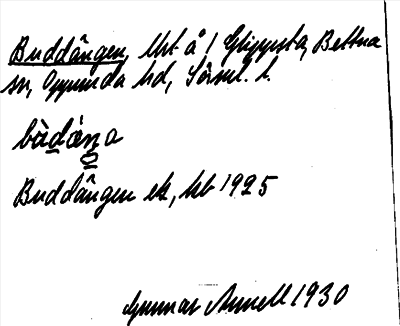 Buddängen, lht å 1 Glippsta, Bettna
sn, Oppunda hd, Söml. l.
bùdä̀ŋa
Buddängen ek, kbl 1925
Gunnar Arnell 1930